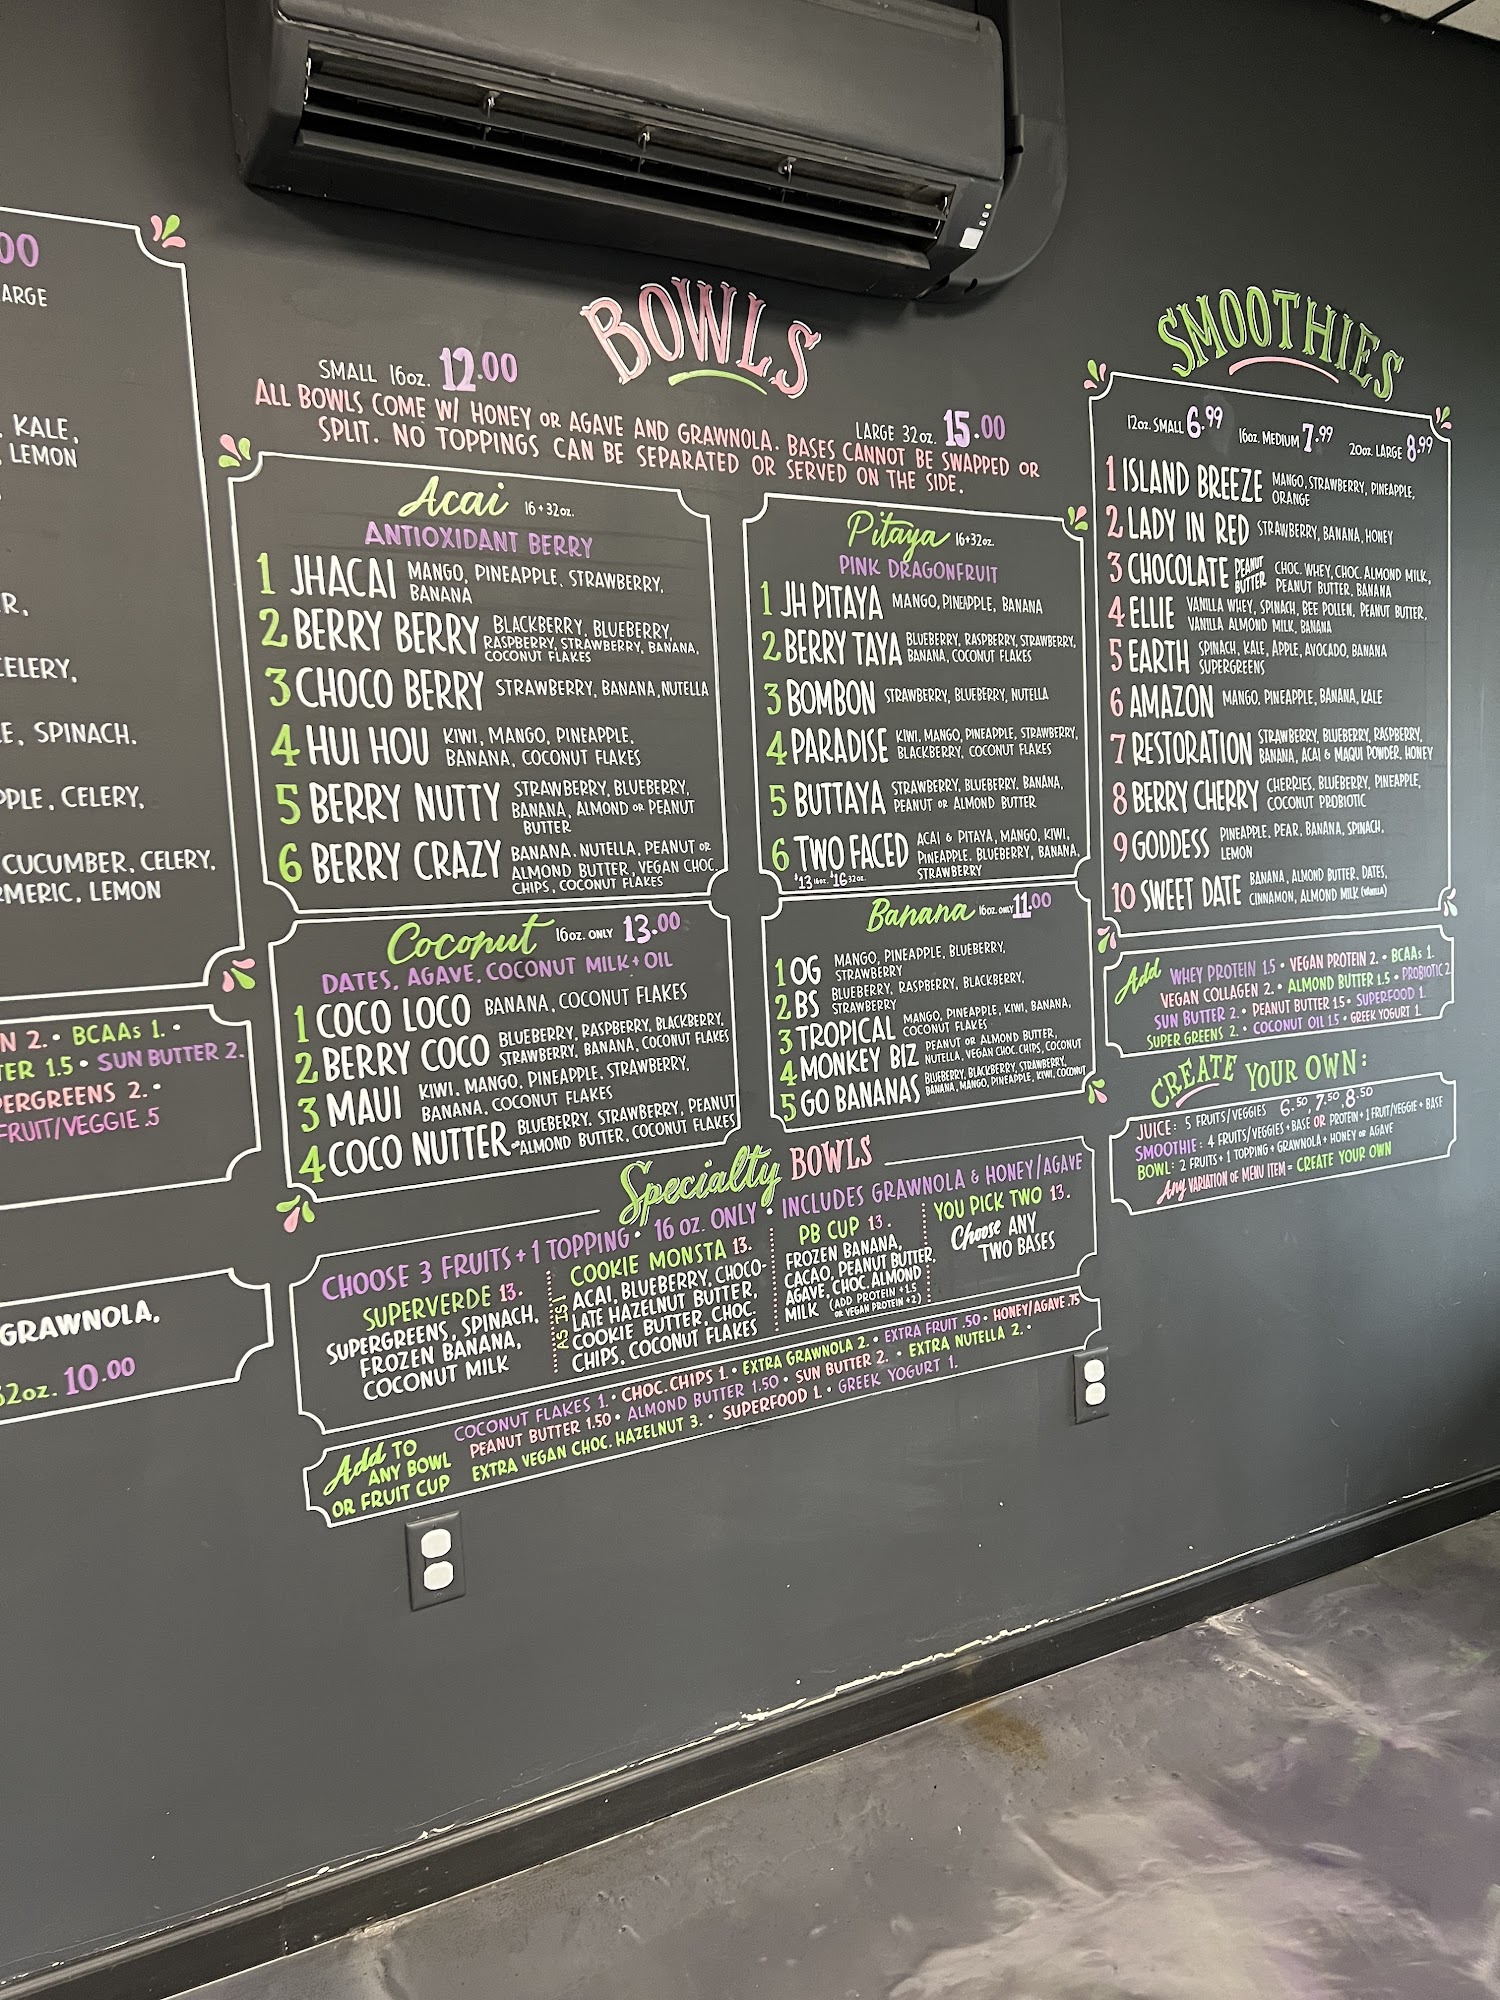 00
ARGE
KALE,
LEMON
R,
CELERY,
E, SPINACH.
PPLE, CELERY,
CUCUMBER, CELERY,
RMERIC, LEMON
N 2. • BCAAs 1. •
TER 1.5 • SUN BUTTER 2.
PERGREENS 2. •
FRUIT/VEGGIE .5
GRAWNOLA,
32oz. 10.00
BOWLS
SMALL 16oz. 12.00
LARGE 32oz. 15.00
ALL BOWLS COME W/ HONEY OR AGAVE AND GRAWNOLA. BASES CANNOT BE SWAPPED OR
SPLIT. NO TOPPINGS CAN BE SEPARATED OR SERVED ON THE SIDE.
Acai 16+32oz.
ANTIOXIDANT BERRY
1 JHACAI MANGO, PINEAPPLE, STRAWBERRY,
BANANA
2 BERRY BERRY BLACKBERRY, BLUEBERRY,
RASPBERRY, STRAWBERRY, BANANA,
COCONUT FLAKES
3 CHOCO BERRY STRAWBERRY, BANANA, NUTELLA
4 HUI HOU KIWI, MANGO, PINEAPPLE,
BANANA, COCONUT FLAKES
5 BERRY NUTTY STRAWBERRY, BLUEBERRY,
BANANA, ALMOND OR PEANUT
BUTTER
6 BERRY CRAZY BANANA, NUTELLA, PEANUT OR
ALMOND BUTTER, VEGAN CHOC.
CHIPS, COCONUT FLAKES
Pitaya 16+32oz.
PINK DRAGONFRUIT
1 JH PITAYA MANGO, PINEAPPLE, BANANA
2 BERRY TAYA BLUEBERRY, RASPBERRY, STRAWBERRY,
BANANA, COCONUT FLAKES
3 BOMBON STRAWBERRY, BLUEBERRY, NUTELLA
4 PARADISE KIWI, MANGO, PINEAPPLE, STRAWBERRY,
BLACKBERRY, COCONUT FLAKES
5 BUTTAYA STRAWBERRY, BLUEBERRY, BANANA,
PEANUT OR ALMOND BUTTER
6 TWO FACED ACAI & PITAYA, MANGO, KIWI,
PINEAPPLE, BLUEBERRY, BANANA,
STRAWBERRY
$13 16oz. $16 32oz.
Coconut 16oz. ONLY 13.00
DATES, AGAVE, COCONUT MILK + OIL
1 COCO LOCO BANANA, COCONUT FLAKES
2 BERRY COCO BLUEBERRY, RASPBERRY, BLACKBERRY,
STRAWBERRY, BANANA, COCONUT FLAKES
3 MAUI KIWI, MANGO, PINEAPPLE, STRAWBERRY,
BANANA, COCONUT FLAKES
4 COCO NUTTER BLUEBERRY, STRAWBERRY, PEANUT
OR ALMOND BUTTER, COCONUT FLAKES
Banana 16oz. ONLY 11.00
1 OG MANGO, PINEAPPLE, BLUEBERRY,
STRAWBERRY
2 BS BLUEBERRY, RASPBERRY, BLACKBERRY,
STRAWBERRY
3 TROPICAL MANGO, PINEAPPLE, KIWI, BANANA,
COCONUT FLAKES
4 MONKEY BIZ PEANUT OR ALMOND BUTTER,
NUTELLA, VEGAN CHOC. CHIPS, COCONUT
5 GO BANANAS BLUEBERRY, BLACKBERRY, STRAWBERRY,
BANANA, MANGO, PINEAPPLE, KIWI, COCONUT
Specialty BOWLS
CHOOSE 3 FRUITS + 1 TOPPING • 16 OZ. ONLY • INCLUDES GRAWNOLA & HONEY/AGAVE
SUPERVERDE 13.
SUPERGREENS, SPINACH,
FROZEN BANANA,
COCONUT MILK
AS IS!
COOKIE MONSTA 13.
ACAI, BLUEBERRY, CHOCO-
LATE HAZELNUT BUTTER,
COOKIE BUTTER, CHOC.
CHIPS, COCONUT FLAKES
PB CUP 13.
FROZEN BANANA,
CACAO, PEANUT BUTTER,
AGAVE, CHOC. ALMOND
MILK (ADD PROTEIN +1.5
OR VEGAN PROTEIN +2)
YOU PICK TWO 13.
Choose ANY
TWO BASES
Add TO
ANY BOWL
OR FRUIT CUP
COCONUT FLAKES 1. • CHOC. CHIPS 1. • EXTRA GRAWNOLA 2. • EXTRA FRUIT .50 • HONEY/AGAVE .75
PEANUT BUTTER 1.50 • ALMOND BUTTER 1.50 • SUN BUTTER 2. • EXTRA NUTELLA 2. •
EXTRA VEGAN CHOC. HAZELNUT 3. • SUPERFOOD 1. • GREEK YOGURT 1.
SMOOTHIES
12oz. SMALL 6.99 16oz. MEDIUM 7.99 20oz. LARGE 8.99
1 ISLAND BREEZE MANGO, STRAWBERRY, PINEAPPLE,
ORANGE
2 LADY IN RED STRAWBERRY, BANANA, HONEY
3 CHOCOLATE PEANUT BUTTER CHOC. WHEY, CHOC. ALMOND MILK,
PEANUT BUTTER, BANANA
4 ELLIE VANILLA WHEY, SPINACH, BEE POLLEN, PEANUT BUTTER,
VANILLA ALMOND MILK, BANANA
5 EARTH SPINACH, KALE, APPLE, AVOCADO, BANANA
SUPERGREENS
6 AMAZON MANGO, PINEAPPLE, BANANA, KALE
7 RESTORATION STRAWBERRY, BLUEBERRY, RASPBERRY,
BANANA, ACAI & MAQUI POWDER, HONEY
8 BERRY CHERRY CHERRIES, BLUEBERRY, PINEAPPLE,
COCONUT PROBIOTIC
9 GODDESS PINEAPPLE, PEAR, BANANA, SPINACH,
LEMON
10 SWEET DATE BANANA, ALMOND BUTTER, DATES,
CINNAMON, ALMOND MILK (VANILLA)
Add WHEY PROTEIN 1.5 • VEGAN PROTEIN 2. • BCAAs 1.
VEGAN COLLAGEN 2. • ALMOND BUTTER 1.5 • PROBIOTIC 2.
SUN BUTTER 2. • PEANUT BUTTER 1.5 • SUPERFOOD 1.
SUPER GREENS 2. • COCONUT OIL 1.5 • GREEK YOGURT 1.
CREATE YOUR OWN:
JUICE: 5 FRUITS/VEGGIES 6.50, 7.50, 8.50
SMOOTHIE: 4 FRUITS/VEGGIES + BASE OR PROTEIN + 1 FRUIT/VEGGIE + BASE
BOWL: 2 FRUITS + 1 TOPPING + GRAWNOLA + HONEY OR AGAVE
Any VARIATION OF MENU ITEM = CREATE YOUR OWN